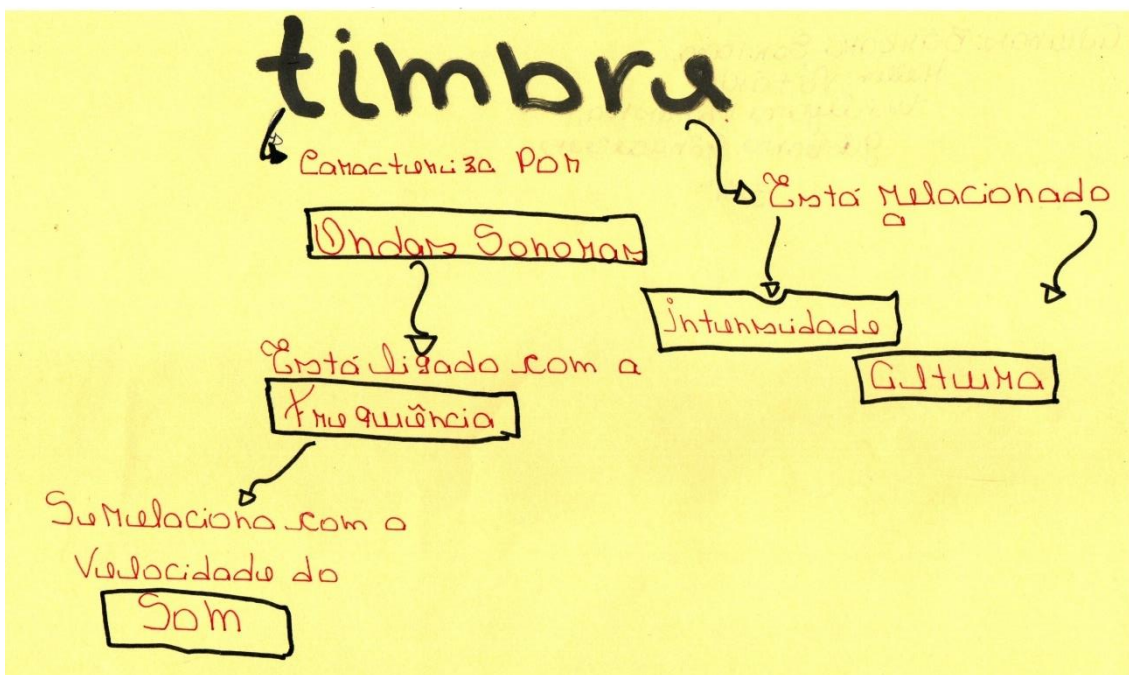 timbre
Caracteriza Por
Ondas Sonoras
Está ligado com a
Frequência
Se relaciona com a
Velocidade do
Som
Está relacionado
a
intensidade
altura